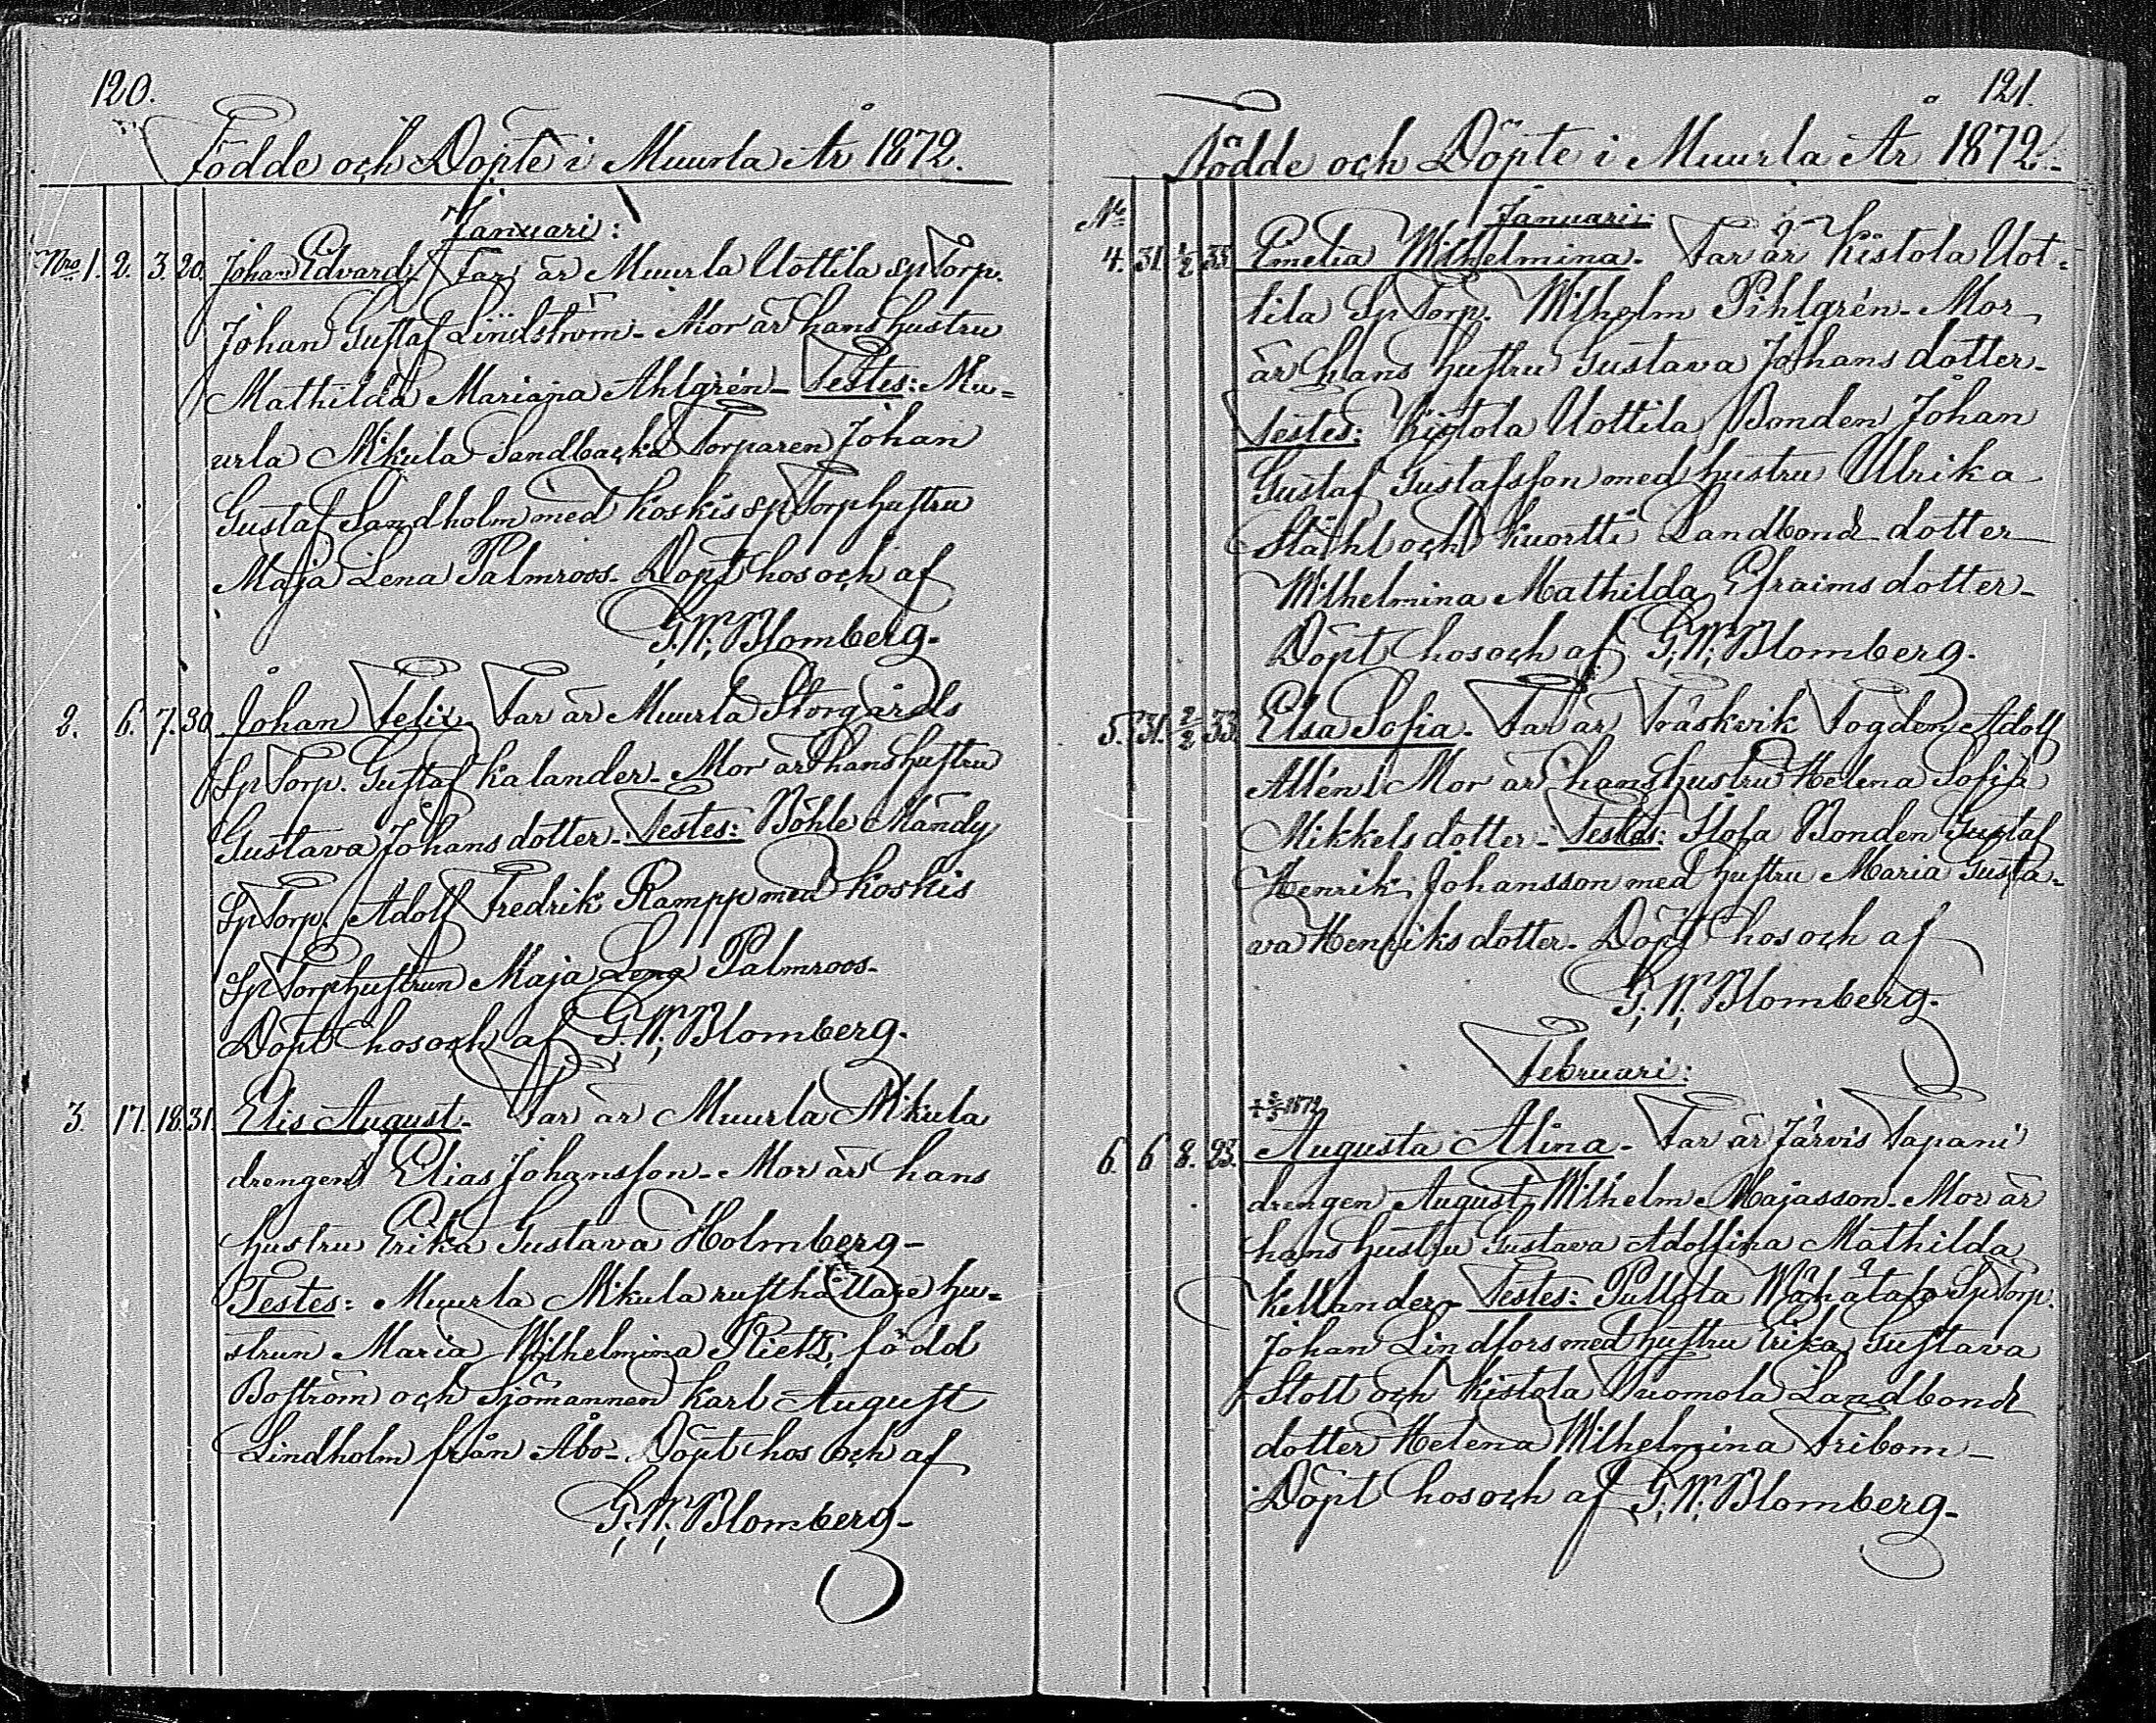 120.
Födde och Döpte i Muurla År 1872.
Januari:
Nro 1. 2. 3. 20. Johan Edvard. Far är Muurla Uottila Sp Torp.
Johan Gustaf Lindström. Mor är hans hustru
Mathilda Mariana Ahlgrén. Testes: Mu=
urla Nikula Sandbacka Torparen Johan
Gustaf Sandholm med Koskis Sp Torphustru
Maja Lena Palmroos. Döpt hos och af
G. W. Blomberg.
2. 6. 7. 30. Johan Felix. Far är Muurla Storgårds
Sp Torp. Gustaf Kalander. Mor är hans hustru
Gustava Johans dotter. Testes: Böhle Mändy
Sp Torp. Adolf Fredrik Rampp med Koskis
Sp Torphustrun Maja Lena Palmroos.
Döpt hos och af G. W. Blomberg.
3. 17. 18. 31. Elis August. Far är Muurla Nikula
drengen Elias Johansson. Mor är hans
hustru Erika Gustava Holmberg.
Testes: Muurla Nikula rusthållare hu=
strun Maria Wilhelmina Rietz, född
Boström och Sjömannen Karl August
Lindholm från Åbo. Döpt hos och af
G. W. Blomberg.
121.
Födde och Döpte i Muurla År 1872.
Januari:
No
4. 31. 1/2 33. Emelia Wilhelmina. Far är Kistola Uot=
tila Sp Torp. Wilhelm Pihlgrén. Mor
är hans hustru Gustava Johans dotter.
Testes: Kistola Uottila Bonden Johan
Gustaf Gustafsson med hustru Ulrika
Ståhl och Kuortti Landbond dotter
Wilhelmina Mathilda Efraims dotter.
Döpt hos och af G. W. Blomberg.
5. 31. 2/2 33. Elsa Sofia. Far är Träskvik Fogden Adolf
Allén. Mor är hans hustru Helena Sofia
Mikkels dotter. Testes: Bonden Gustaf
Henrik Johansson med hustru Maria Gusta=
va Henriks dotter. Döpt hos och af
G. W. Blomberg.
Februari:
1872
6. 6 8. 23. Augusta Alina. Far är Järvis Tapani
drengen August Wilhelm Majasson. Mor är
hans hustru Gustava Adolfina Mathilda
Killander. Testes: Pullola Wähätalo Sp Torp.
Johan Lindfors med hustru Erika Gustava
Stolt och Kistola Tuomola Landbond
dotter Helena Wilhelmina Fribom
Döpt hos och af G. W. Blomberg.